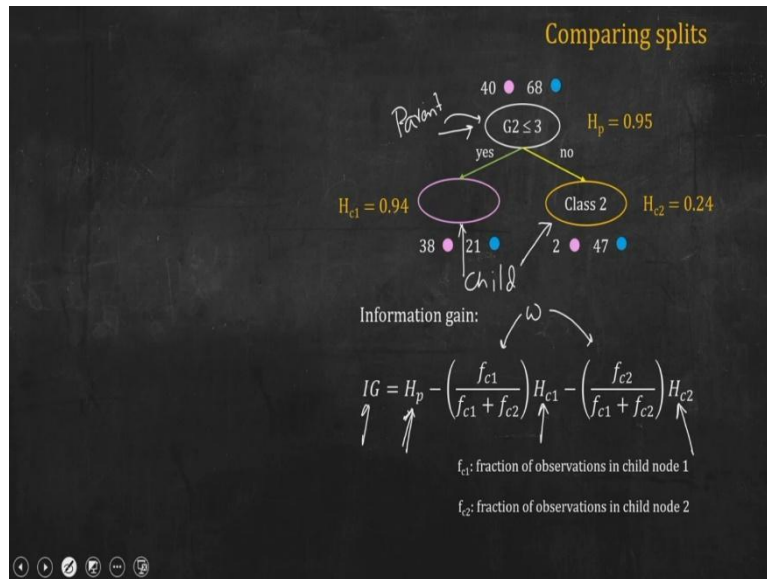 Comparing splits
40 68
Parent
G2 ≤ 3
H_p = 0.95
yes no
H_c1 = 0.94
Class 2
H_c2 = 0.24
38 21 2 47
Child
Information gain:
ω
IG = H_p − (f_c1 / (f_c1 + f_c2)) H_c1 − (f_c2 / (f_c1 + f_c2)) H_c2
f_c1: fraction of observations in child node 1
f_c2: fraction of observations in child node 2